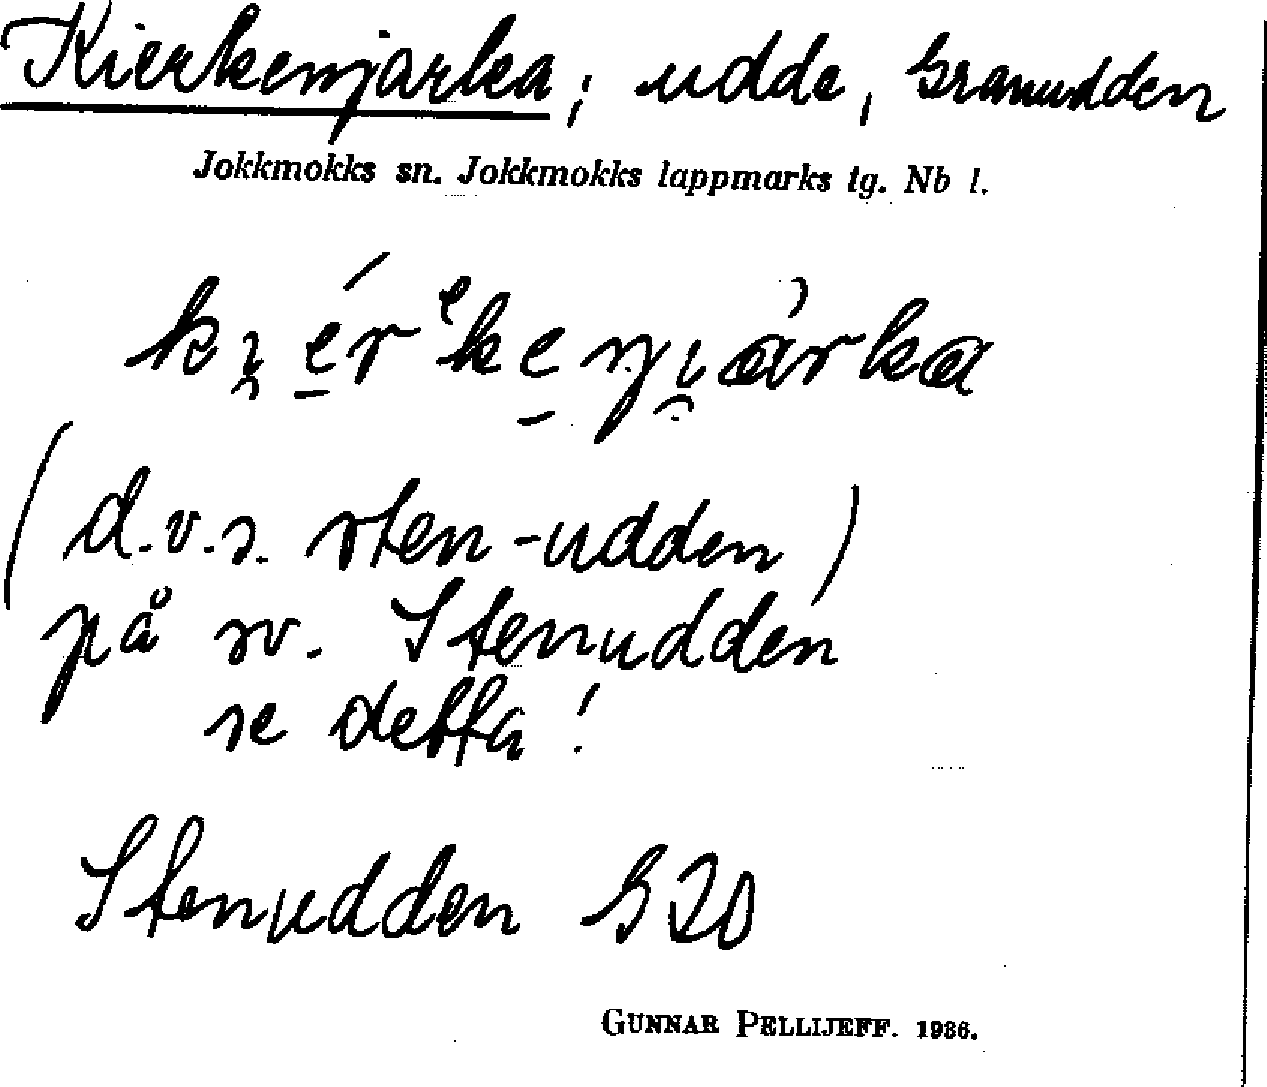 Kierkenjarka; udde, Granudden
Jokkmokks sn. Jokkmokks lappmarks tg. Nb l.
ki̯é̱rᵉke̱ŋi̯àrka
(d.v.s. sten-udden)
på sv. Stenudden
se detta!
Stenudden G20
GUNNAR PELLIJEFF. 1936.